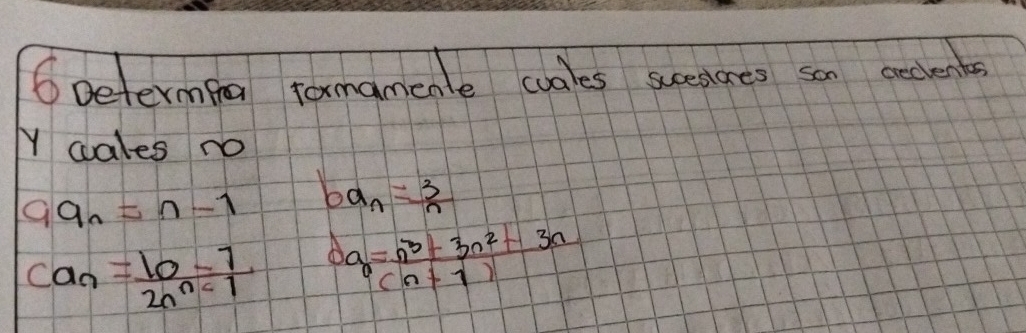 6 Determina formamente cuales sucesiones son crecientes
Y cuales no
a an = n - 1 b an = 3/n
c an = 10 - 7 / 2n n - 1 d an = n³ + 3n² + 3n / (n + 1)